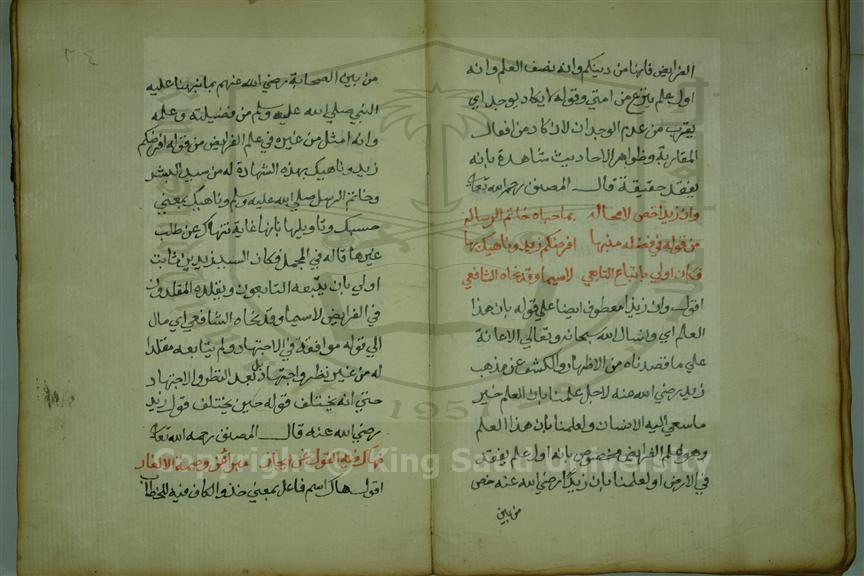 الفرايض فانها من دينكم وانه نصف العلم وانه
اول علم ينزع من امتي وقوله لا يكاد يوجد اي
يقرب من عدم الوجدان لان كاد من افعال
المقاربة وظواهر الاحاديث شاهدة بانه
يفقد حقيقة قال المصنف رحمه الله تعا
وان زيدا خص لا محاله بما حباه خاتم الرساله
من قوله في فضله منبها افرضكم زيد وناهيك بها
فكان اولي باتباع التابعي لا سيما وقد نحاه الشافعي
اقول وان زيدا معطوف ايضا علي قوله بان هذا
العلم اي واسال الله سبحانه وتعالي الاعانة
علي ما قصدناه من الاظهار والكشف عن مذهب
زيد رضي الله عنه لاجل علمنا بان العلم خير
ما سعي اليه الانسان ولعلمنا بان هذا العلم
وهو علم الفرايض مخصوص بانه اول علم يفقد
في الارض اولعلمنا بان زيدا رضي الله عنه خص
من بين
من بين الصحابة رضي الله عنهم بما نبهنا عليه
النبي صلي الله عليه وسلم من فضيلته وعلمه
وانه امثل من غيره في علم الفرايض من قوله افرضكم
زيد وناهيك بهذه الشهادة له من سيد البشر
وخاتم الرسل صلي الله عليه وسلم وناهيك بمعني
حسبك وتاويلها بانها غاية تنهاك عن طلب
غيرها قاله في المجمل فكان السيد زيد بن ثابت
اولي بان يتبعه التابعون ويقلده المقلدون
في الفرايض لا سيما وقد نحاه الشافعي اي مال
الي قوله موافقة في الاجتهاد ولم يتابعه مقلدا
له من غير نظر واجتهاد بل بعد النظر والاجتهاد
حتي انه يختلف قوله حين يختلف قول زيد
رضي الله عنه قال المصنف رحمه الله تعا
فهاك فيه القول عن ايجاز مبرا عن وصمة الالغاز
اقول هاك اسم فاعل بمعني خذ والكاف فيه للخطاب
٢٤
Copyright © King Saud University
1957